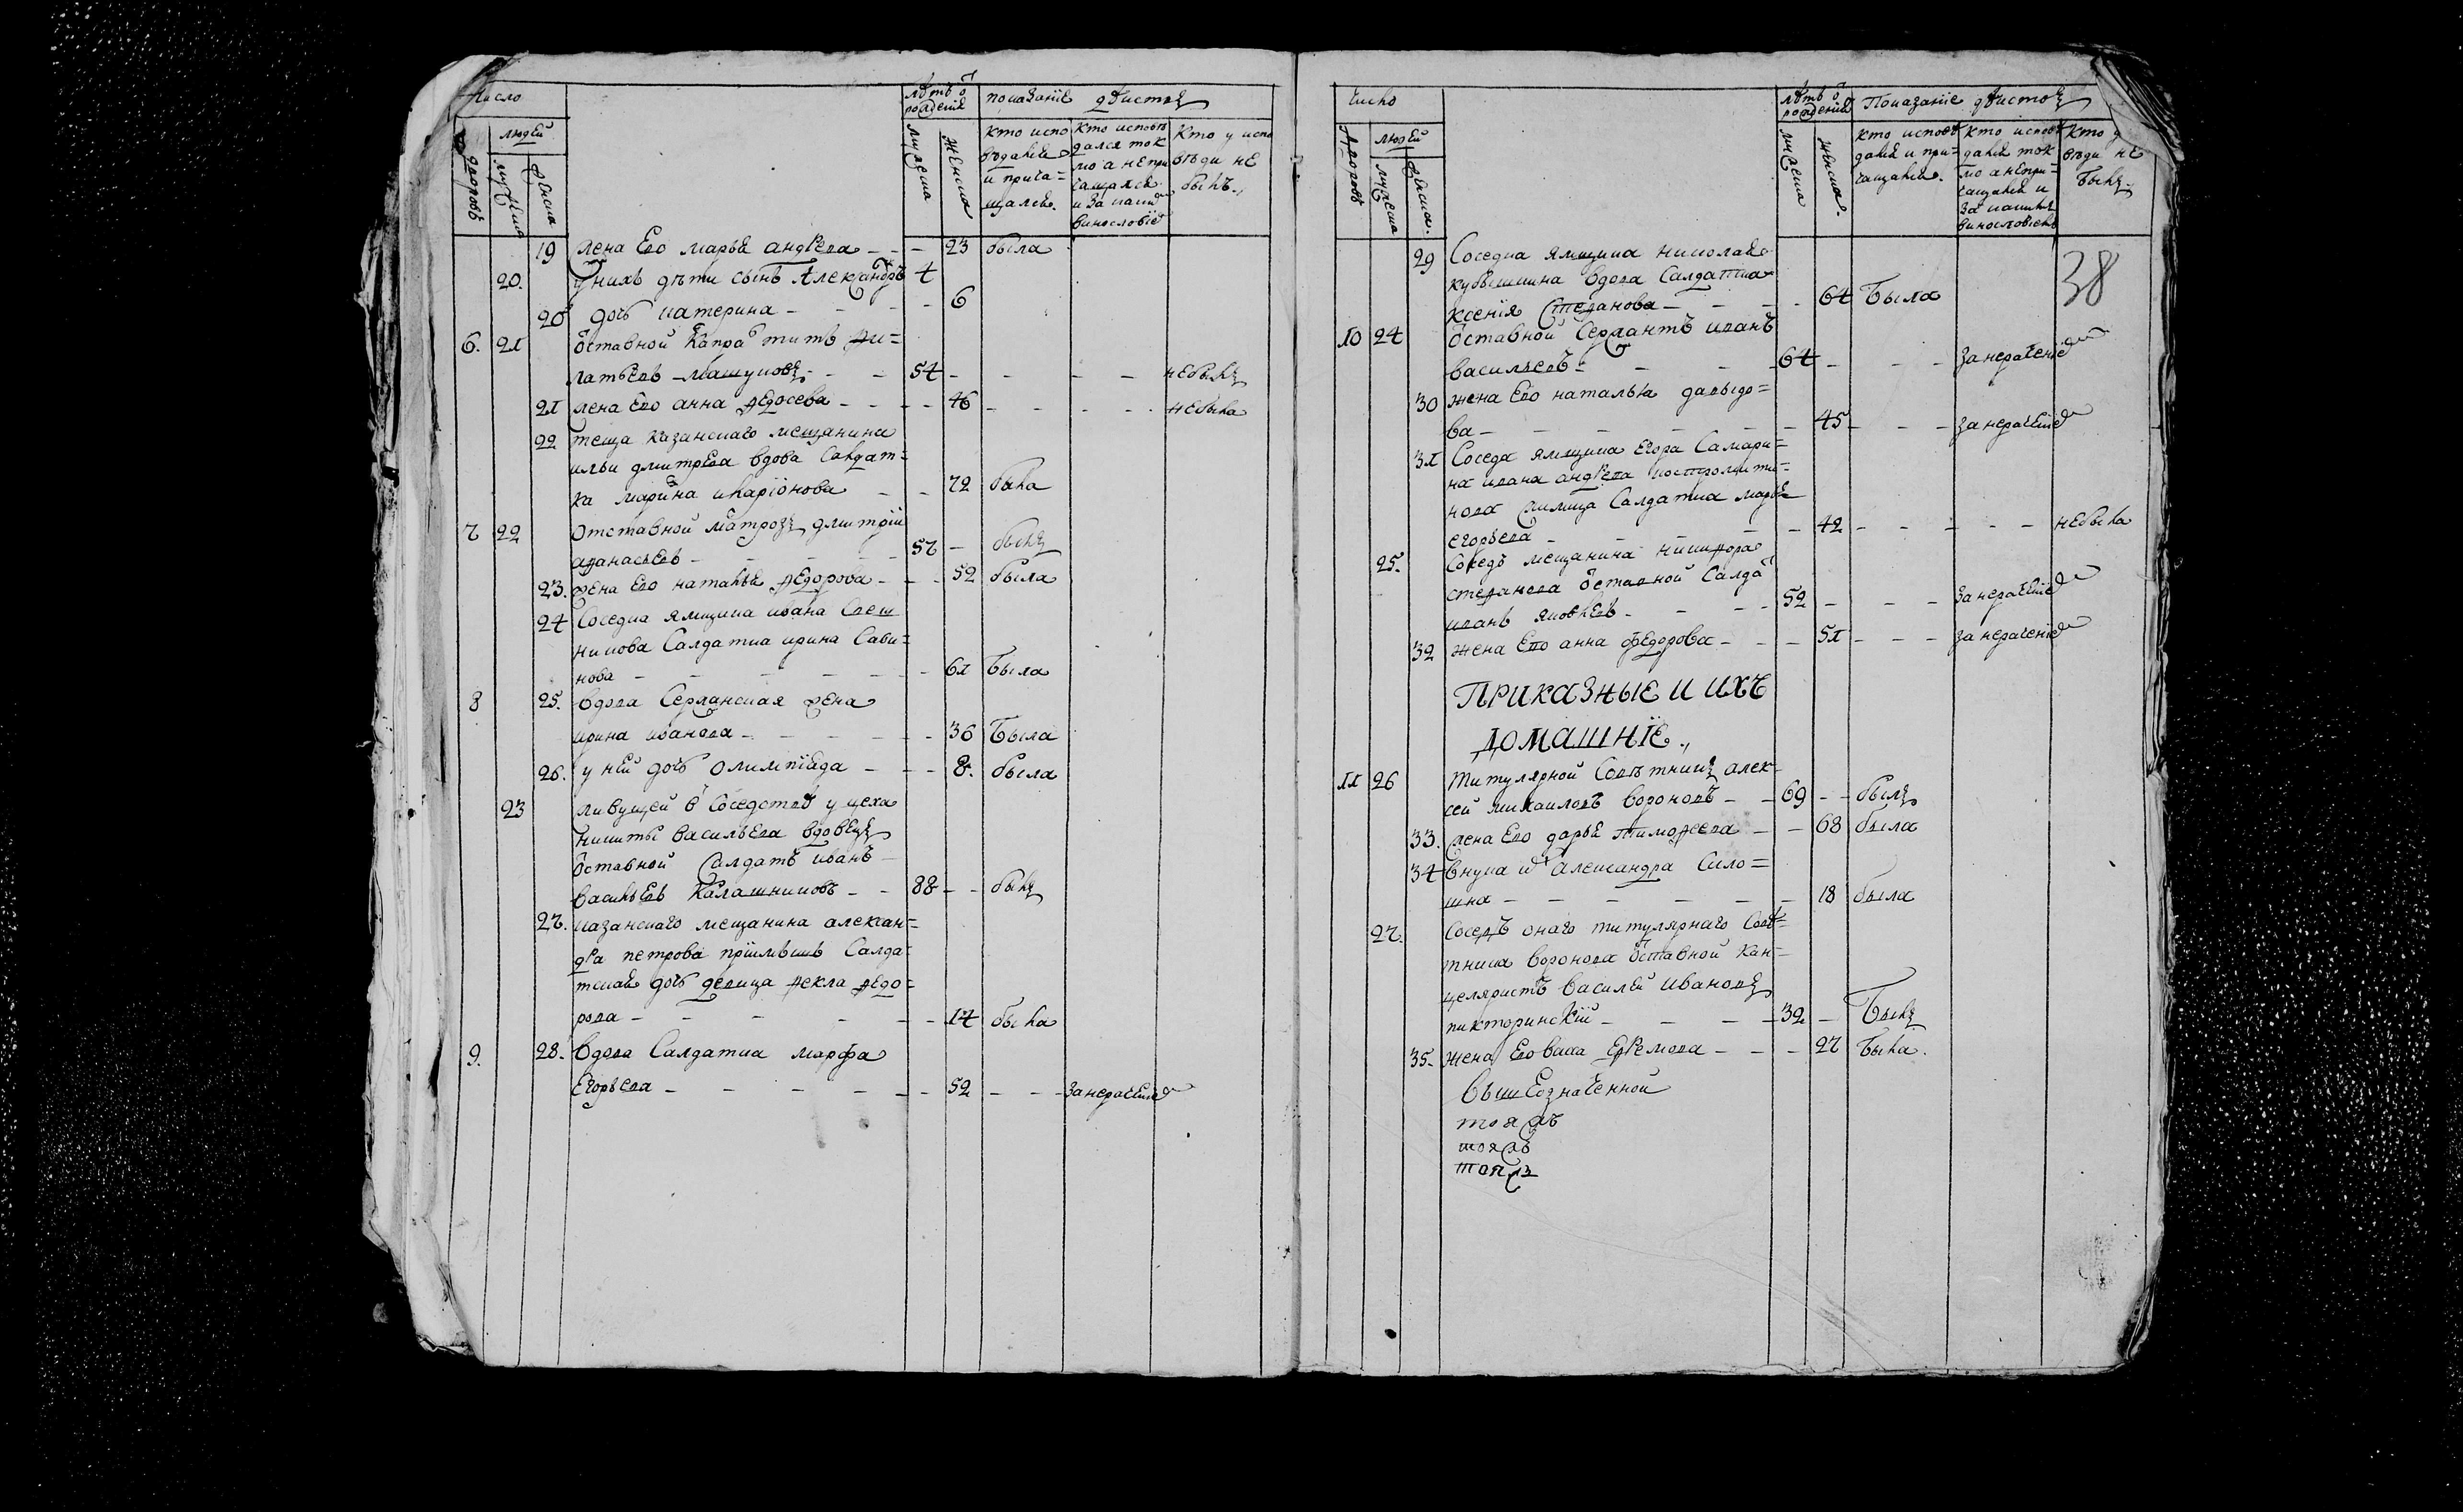 Число
лѣтъ ѿ рожденія
показаніе дѣйства
дворовъ
людей
мужеска
женска
мужеска
женска
кто исповѣдался и причащался
кто исповѣдался токмо а не причащался и за какимъ винословіемъ
кто у исповѣди не былъ
19 жена Его марья андреева - - - 23 была
20. у нихъ дѣти сынъ Александръ 4
20 дочь катерина - - - 6
6. 21 ѿставной Капралъ титъ фи=
латьевъ - - - 54 - - - - небылъ
21 жена Его анна федосеева - - - 46 - - - - небыла
22 теща казанскаго мещанина
ильи дмитрева вдова Салдат=
ка марина иларіонова - - 72 была
7 22 Отставной матрозъ дмитрій
афанасьевъ - - - 57 - былъ
23. жена Его наталья федорова - - 52 была
24 Соседка ямщика ивана
никова Салдатка ирина Сави=
нова - - - 61 Была
8 25. вдова Сержанская жена
ирина иванова - - - 36 Была
26. у ней дочь олимпіада - - - 8. была
23 живущей в Соседстве у цеха
никиты васильева вдовецъ
ѿставной Салдатъ иванъ
васильевъ Калашниковъ - - 88 - - былъ
27. казанскаго мещанина алексан=
дра петрова пріимышъ Салда=
тская дочь девица фекла федо=
рова - - - 14 была
9. 28. вдова Салдатка марфа
Егорьева - - - 52 - - - за нераченіемъ
число
лѣтъ ѿ рожденія
Показаніе дѣйства
дворовъ
людей
мужеска
женска.
мужеска
женска.
кто исповѣдался и при=чащался.
кто исповѣдался токмо а не при=чащался и за какимъ винословіемъ
кто у исповѣди не былъ
38
29 Соседка ямщика николая
кубышкина вдова Салдатка
ксенія Степанова - - - 64 Была
10 24 ѿставной Сержантъ иванъ
васильевъ - - - 64 - - - за нераченіемъ
30 жена Его наталья давыдо=
ва - - - 45 - - - за нераченіемъ
31 Соседа ямщика Егора Самари=
на ивана андреева костроми­ти=
нова Салдатка марья
егорьева - - - 42 - - - - - небыла
25. Соседъ мещанина никифора
степанова ѿставной Салдатъ
иванъ яковлевъ - - - 52 - - - за нераченіемъ
32 жена Его анна федорова - - - 51 - - - за нераченіемъ
ПРИКАЗНЫЕ И ИХЪ
ДОМАШНІЕ.,
11 26 титулярной Советникъ алек=
сей михаиловъ вороновъ - - 69 - - былъ
33. жена Его дарья тимофеева - - 68 была
34 внука ихъ александра Сило=
шна - - - 18 была
27. Соседъ онаго титулярнаго Сове=
тника воронова ѿставной Кан=
целяристъ василей ивановъ
пикторинскій - - - 32 - Былъ
35. жена Его васа Ефремова - - - 27 Была.
вышеозначенной